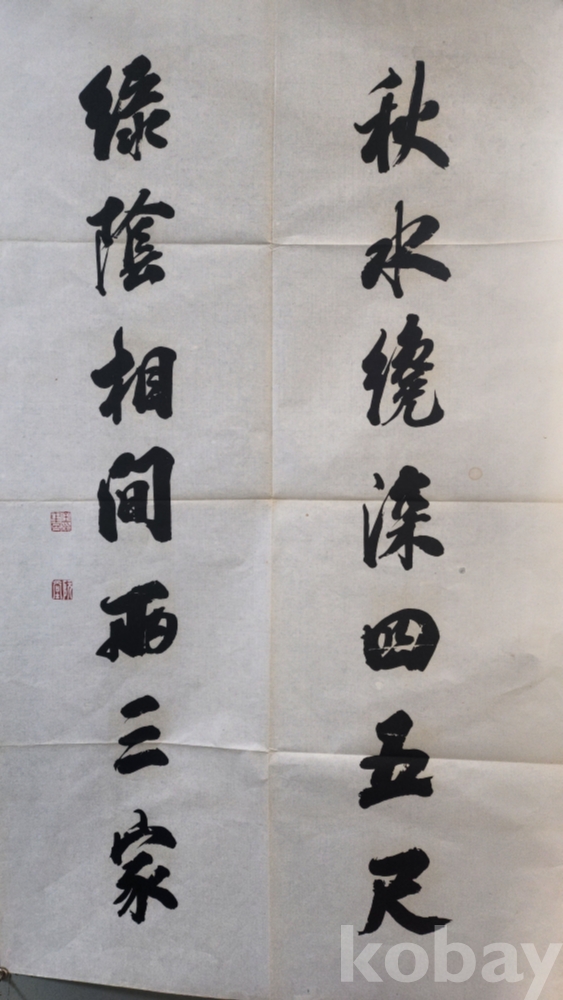 秋水繞深四五尺
綠陰相間兩三家
kobay